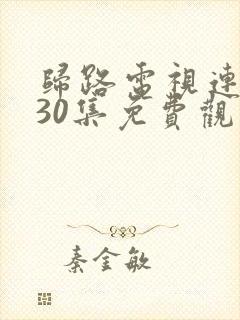 歸路電視連
30集免費觀
秦金敏